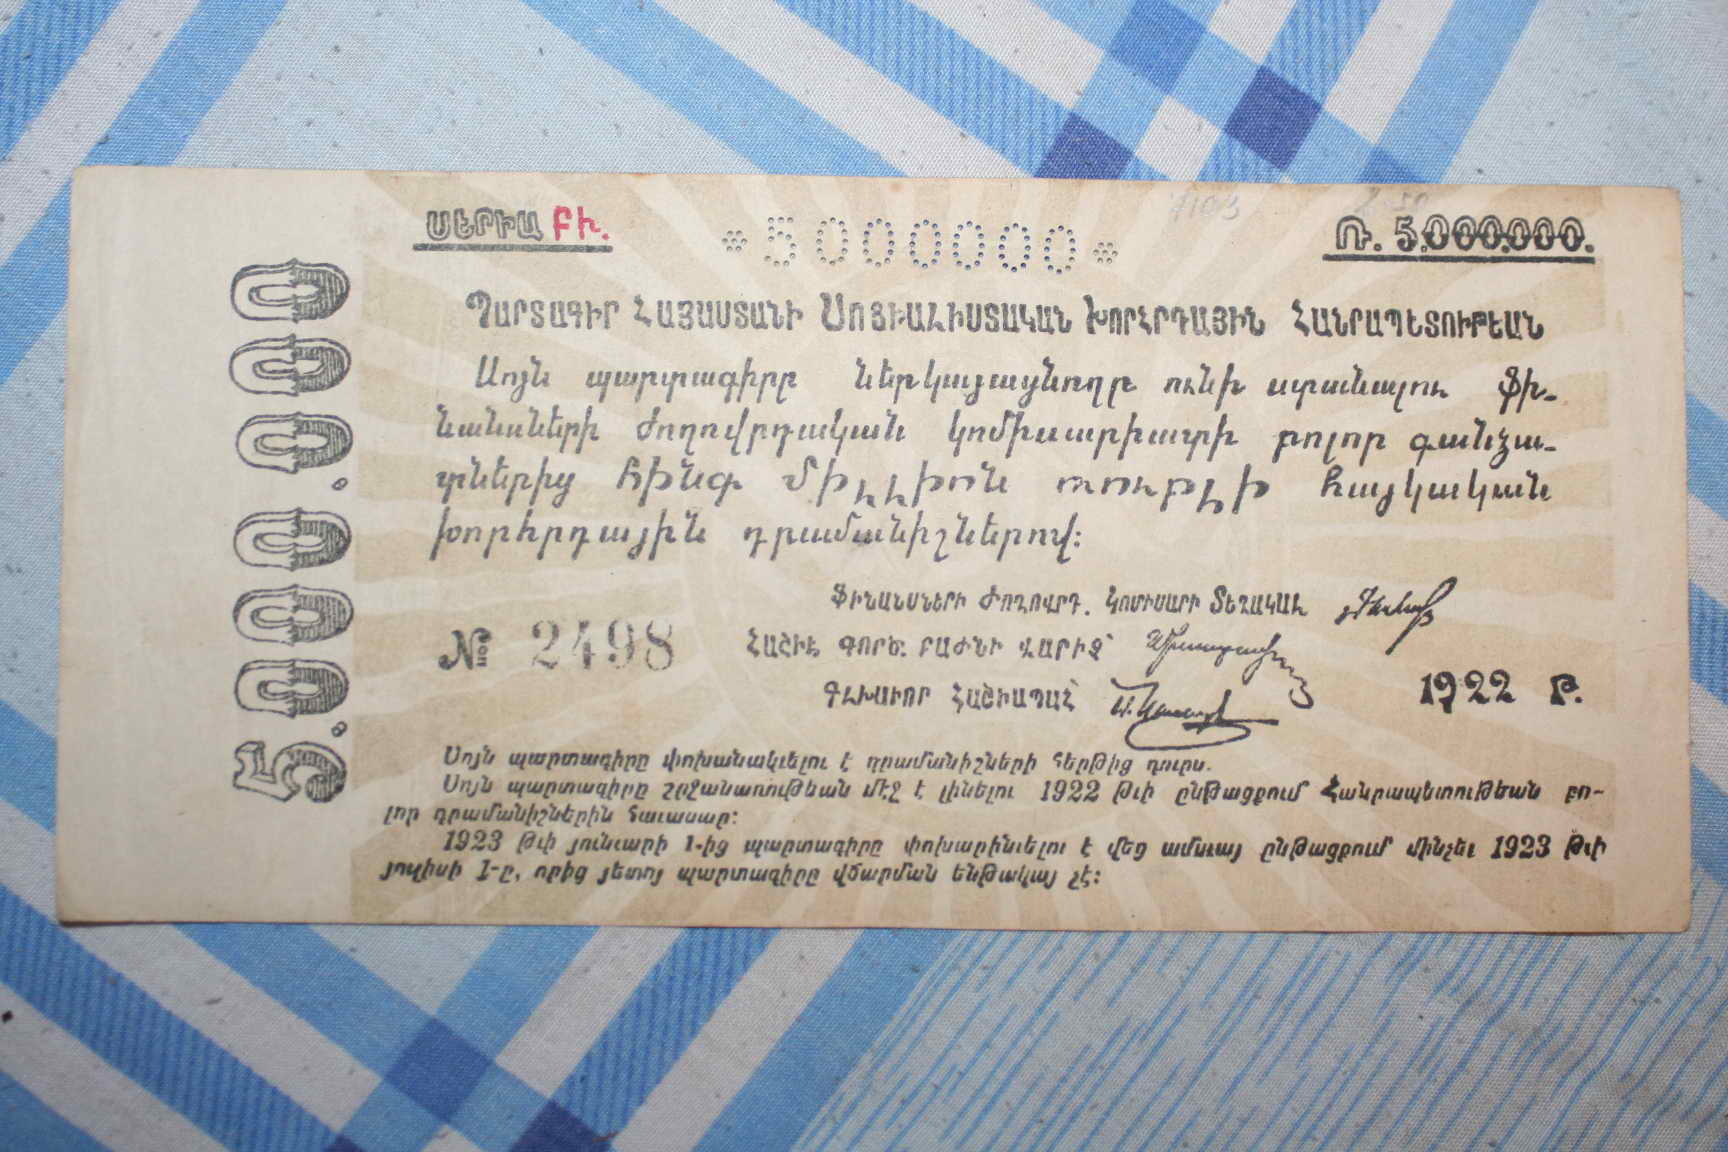 ՍԵՐԻԱ ԲԻ.
5000000
Ռ. 5.000.000.
5.000.000
ՊԱՐՏԱԳԻՐ ՀԱՅԱՍՏԱՆԻ ՍՈՑԻԱԼԻՍՏԱԿԱՆ ԽՈՐՀՐԴԱՅԻՆ ՀԱՆՐԱՊԵՏՈՒԹԵԱՆ
Սոյն պարտագիրը ներկայացնողը ունի ստանալու Ֆի-
նանսների Ժողովրդական կոմիսարիատի բոլոր գանձա-
տներից հինգ միլլիոն ռուբլի հայկական
խորհրդային դրամանիշներով:
ՖԻՆԱՆՍՆԵՐԻ ԺՈՂՈՎՐԴ. ԿՈՄԻՍԱՐԻ ՏԵՂԱԿԱԼ
№ 2498
ՀԱՇԻՒ ԳՈՐԾ. ԲԱԺՆԻ ՎԱՐԻՉ՝
ԳԼԽԱՒՈՐ ՀԱՇՒԱՊԱՀ՝
1922 Թ.
Սոյն պարտագիրը փոխանակւելու է դրամանիշների հերթից դուրս.
Սոյն պարտագիրը շրջանառութեան մէջ է լինելու 1922 թւի ընթացքում Հանրապետութեան բո-
լոր դրամանիշներին հաւասար:
1923 թւի յունւարի 1-ից պարտագիրը փոխարինւելու է վեց ամսւայ ընթացքում մինչեւ 1923 թւի
յուլիսի 1-ը, որից յետոյ պարտագիրը վճարման ենթակայ չէ: